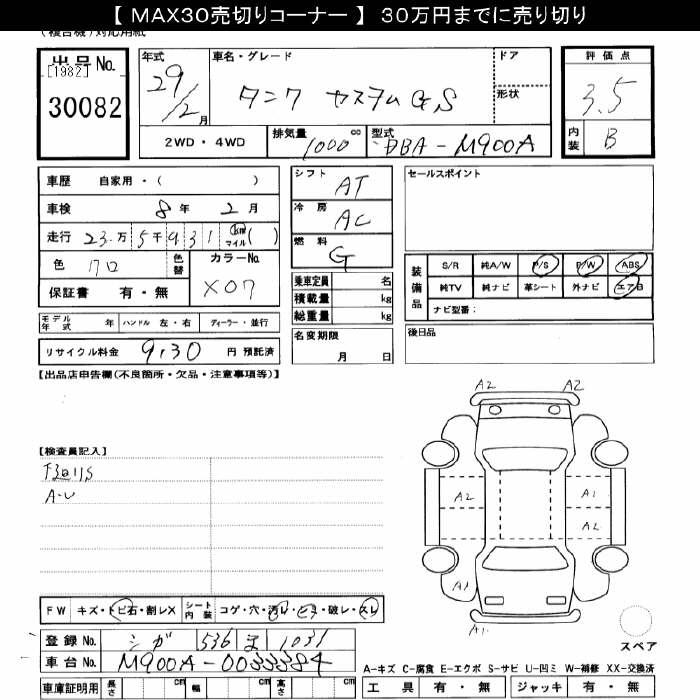 【 MAX30売切りコーナー 】 30万円までに売り切り
(複合機)対応用紙
出品No. [1982]
30082
年式 29/2月
車名・グレード タンク カスタムG,S
ドア
形状
評価点 3.5
内装 B
2WD・4WD
排気量 1000 cc
型式 DBA-M900A
車歴 自家用・( )
車検 8年 2月
走行 23万5千931 km マイル ( )
色 クロ 色替 カラーNo. X07
保証書 有・無
シフト AT
冷房 AC
燃料 G
乗車定員 名
積載量 kg
総重量 kg
名変期限 月 日
セールスポイント
装備品 S/R 純A/W P/S P/W ABS
純TV 純ナビ 革シート 外ナビ エアB
ナビ型番:
後日品
モデル年式 年 ハンドル 左・右 ディーラー・並行
リサイクル料金 9,130 円 預託済
【出品店申告欄(不良箇所・欠品・注意事項等)】
【検査員記入】
下廻りS
A・U
A2 A2
A2 A1
A2
A1
A1
スペア
FW キズ・トビ石・割レX シート内装 コゲ・穴・汚レ・ヒヨ・破レ・スレ
登録No. シガ 536 ま 1031
車台No. M900A-0033384
車庫証明用 長さ cm 幅 cm 高さ cm
A-キズ C-腐食 E-エクボ S-サビ U-凹ミ W-補修 XX-交換済
工具 有・無 ジャッキ 有・無